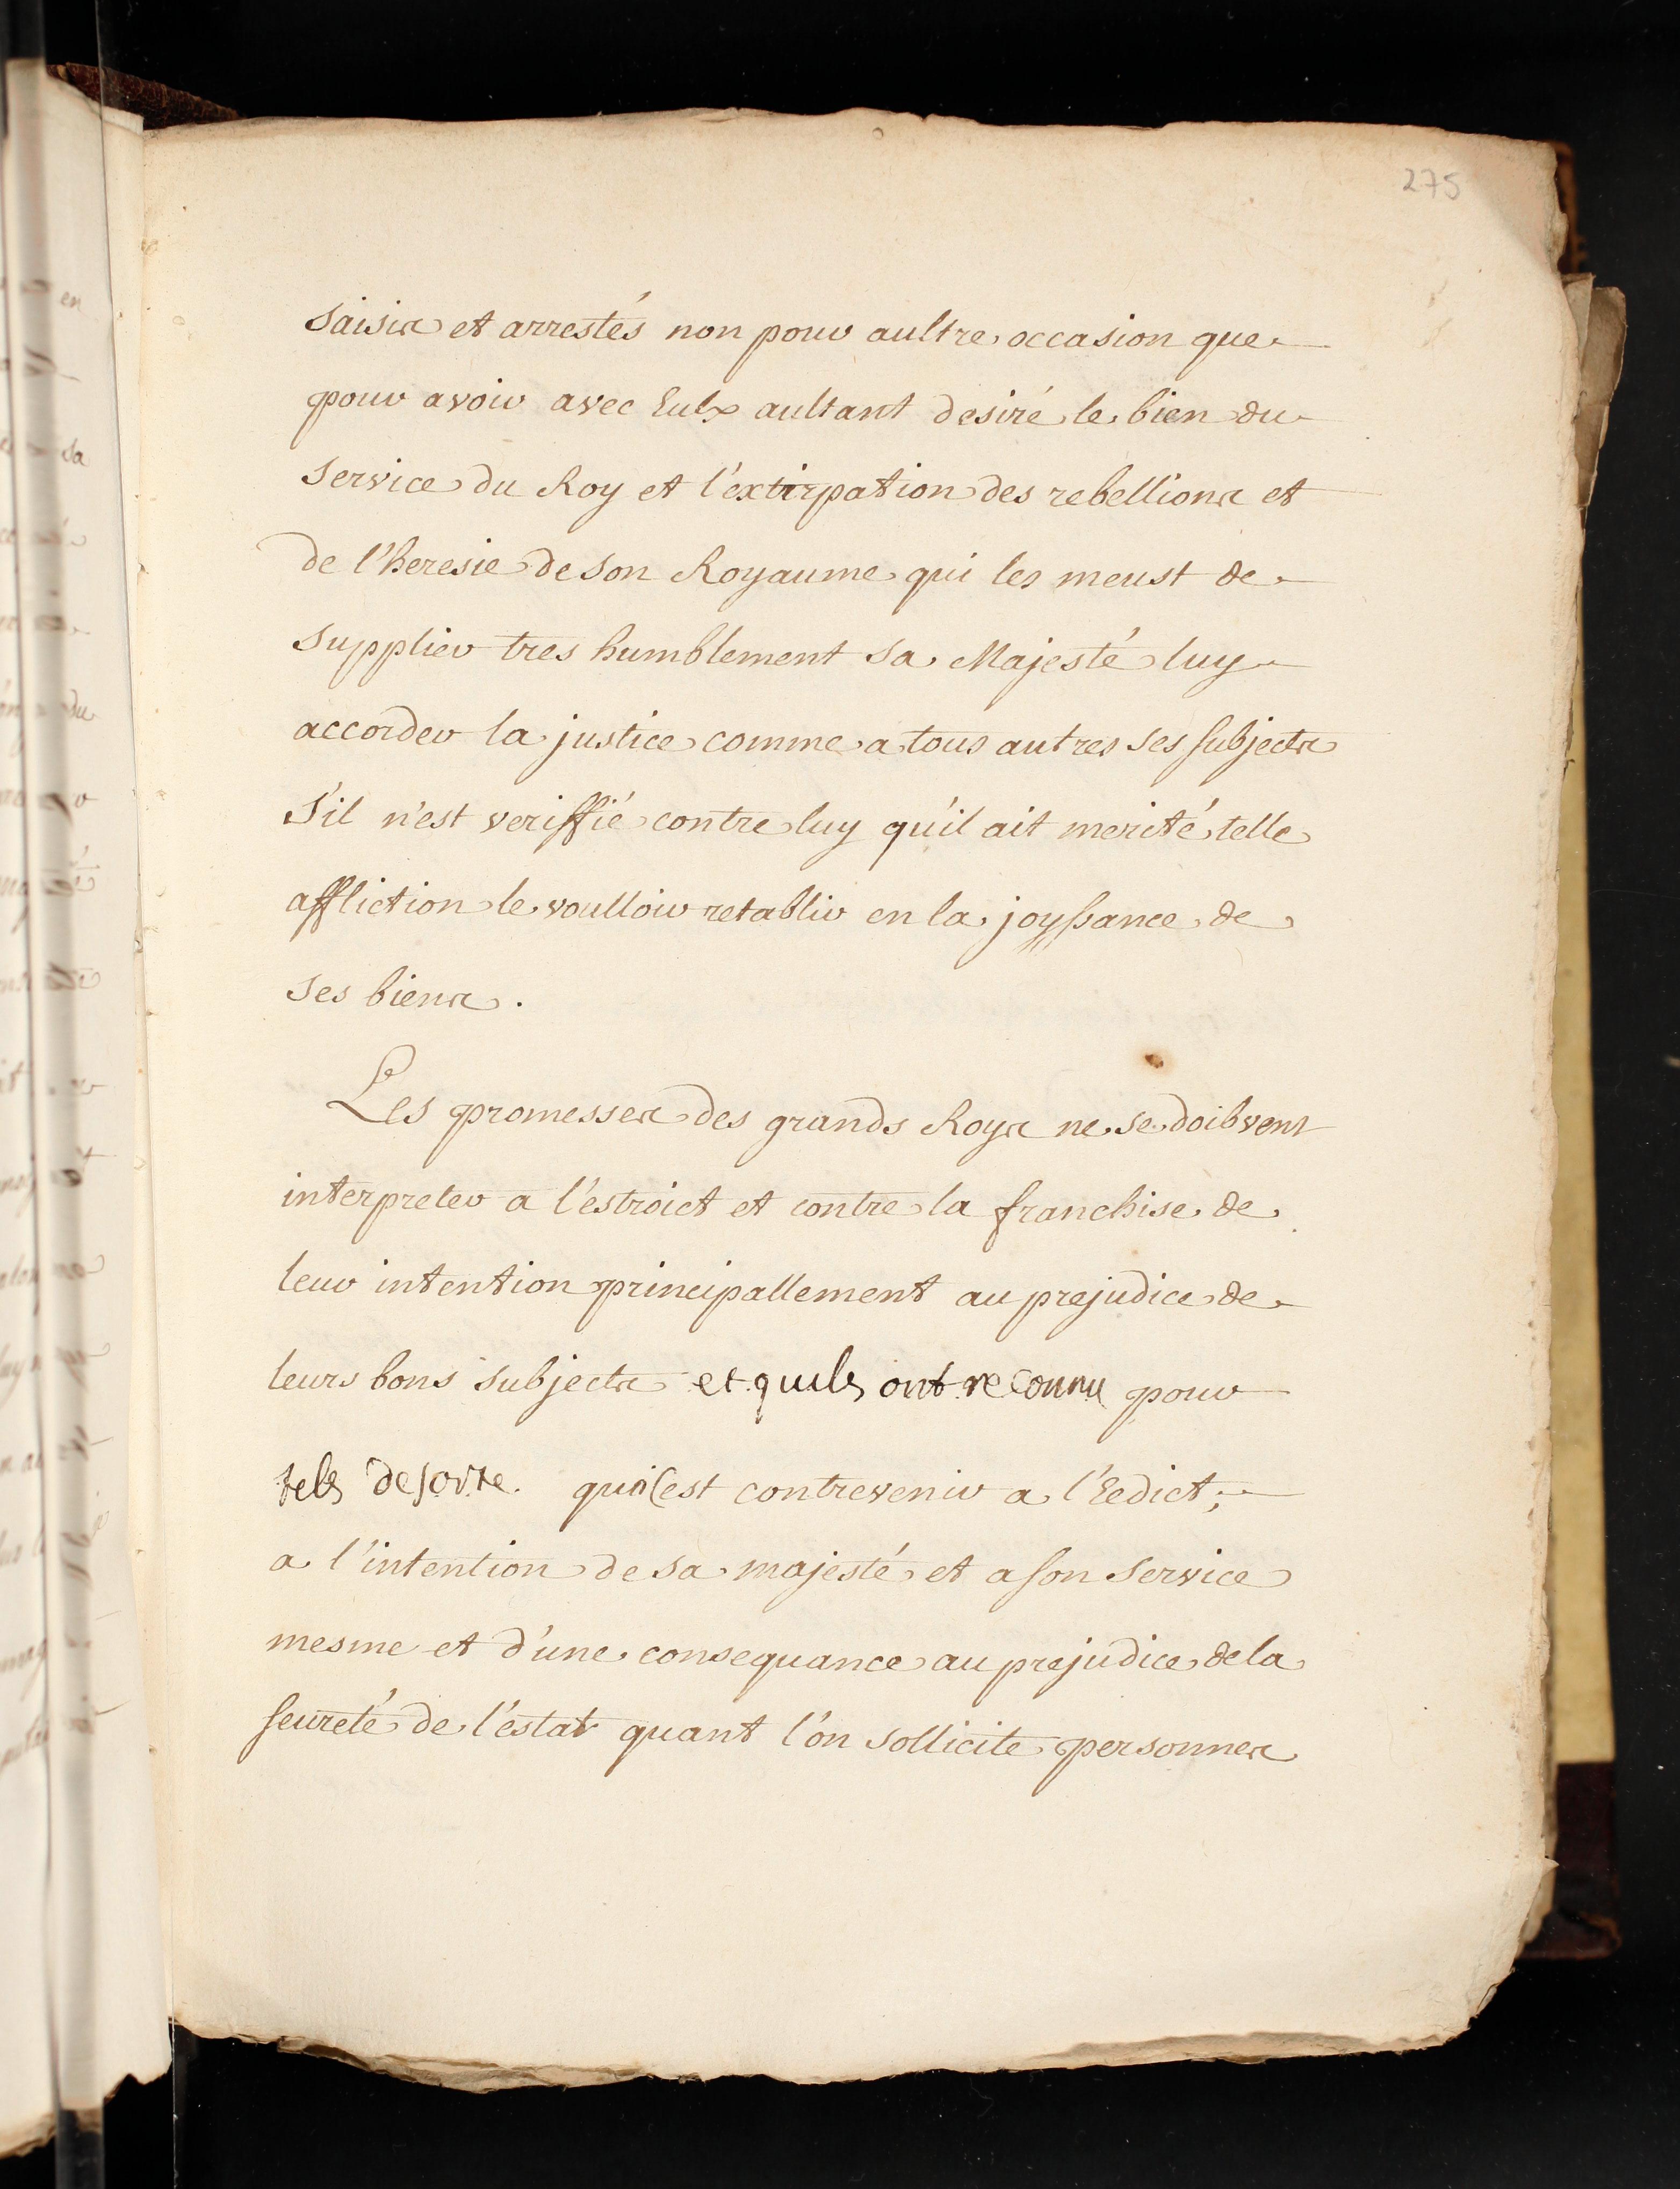 275
saisis et arrestés non pour aultre occasion que
pour avoir avec Eulx aultant desiré le bien du
service du Roy et l'extirpation des rebellions et
de l'heresie de son Royaume qui les meust de
supplier tres humblement sa Majesté luy
accorder la justice comme a tous autres ses subjects
s'il n'est veriffié contre luy qu'il ait merité telle
affliction le voulloir retablir en la joyssance de
ses biens.
Les promesses des grands Roys ne se doibvent
interpreter a l'estroict et contre la franchise de
leur intention principallement au prejudice de
leurs bons subjects et quils ont reconnu pour
tels de sorte. qu'il est contrevenir a l'Eedict;
a l'intention de sa majesté et a son service
mesme et d'une consequance au prejudice de la
seureté de l'estat quant l'on sollicite personnes